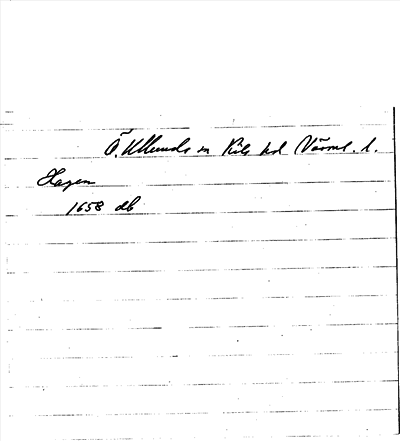 Ö. Ulleruds sn Kils hd Värml. l.
Hagen
1658 db